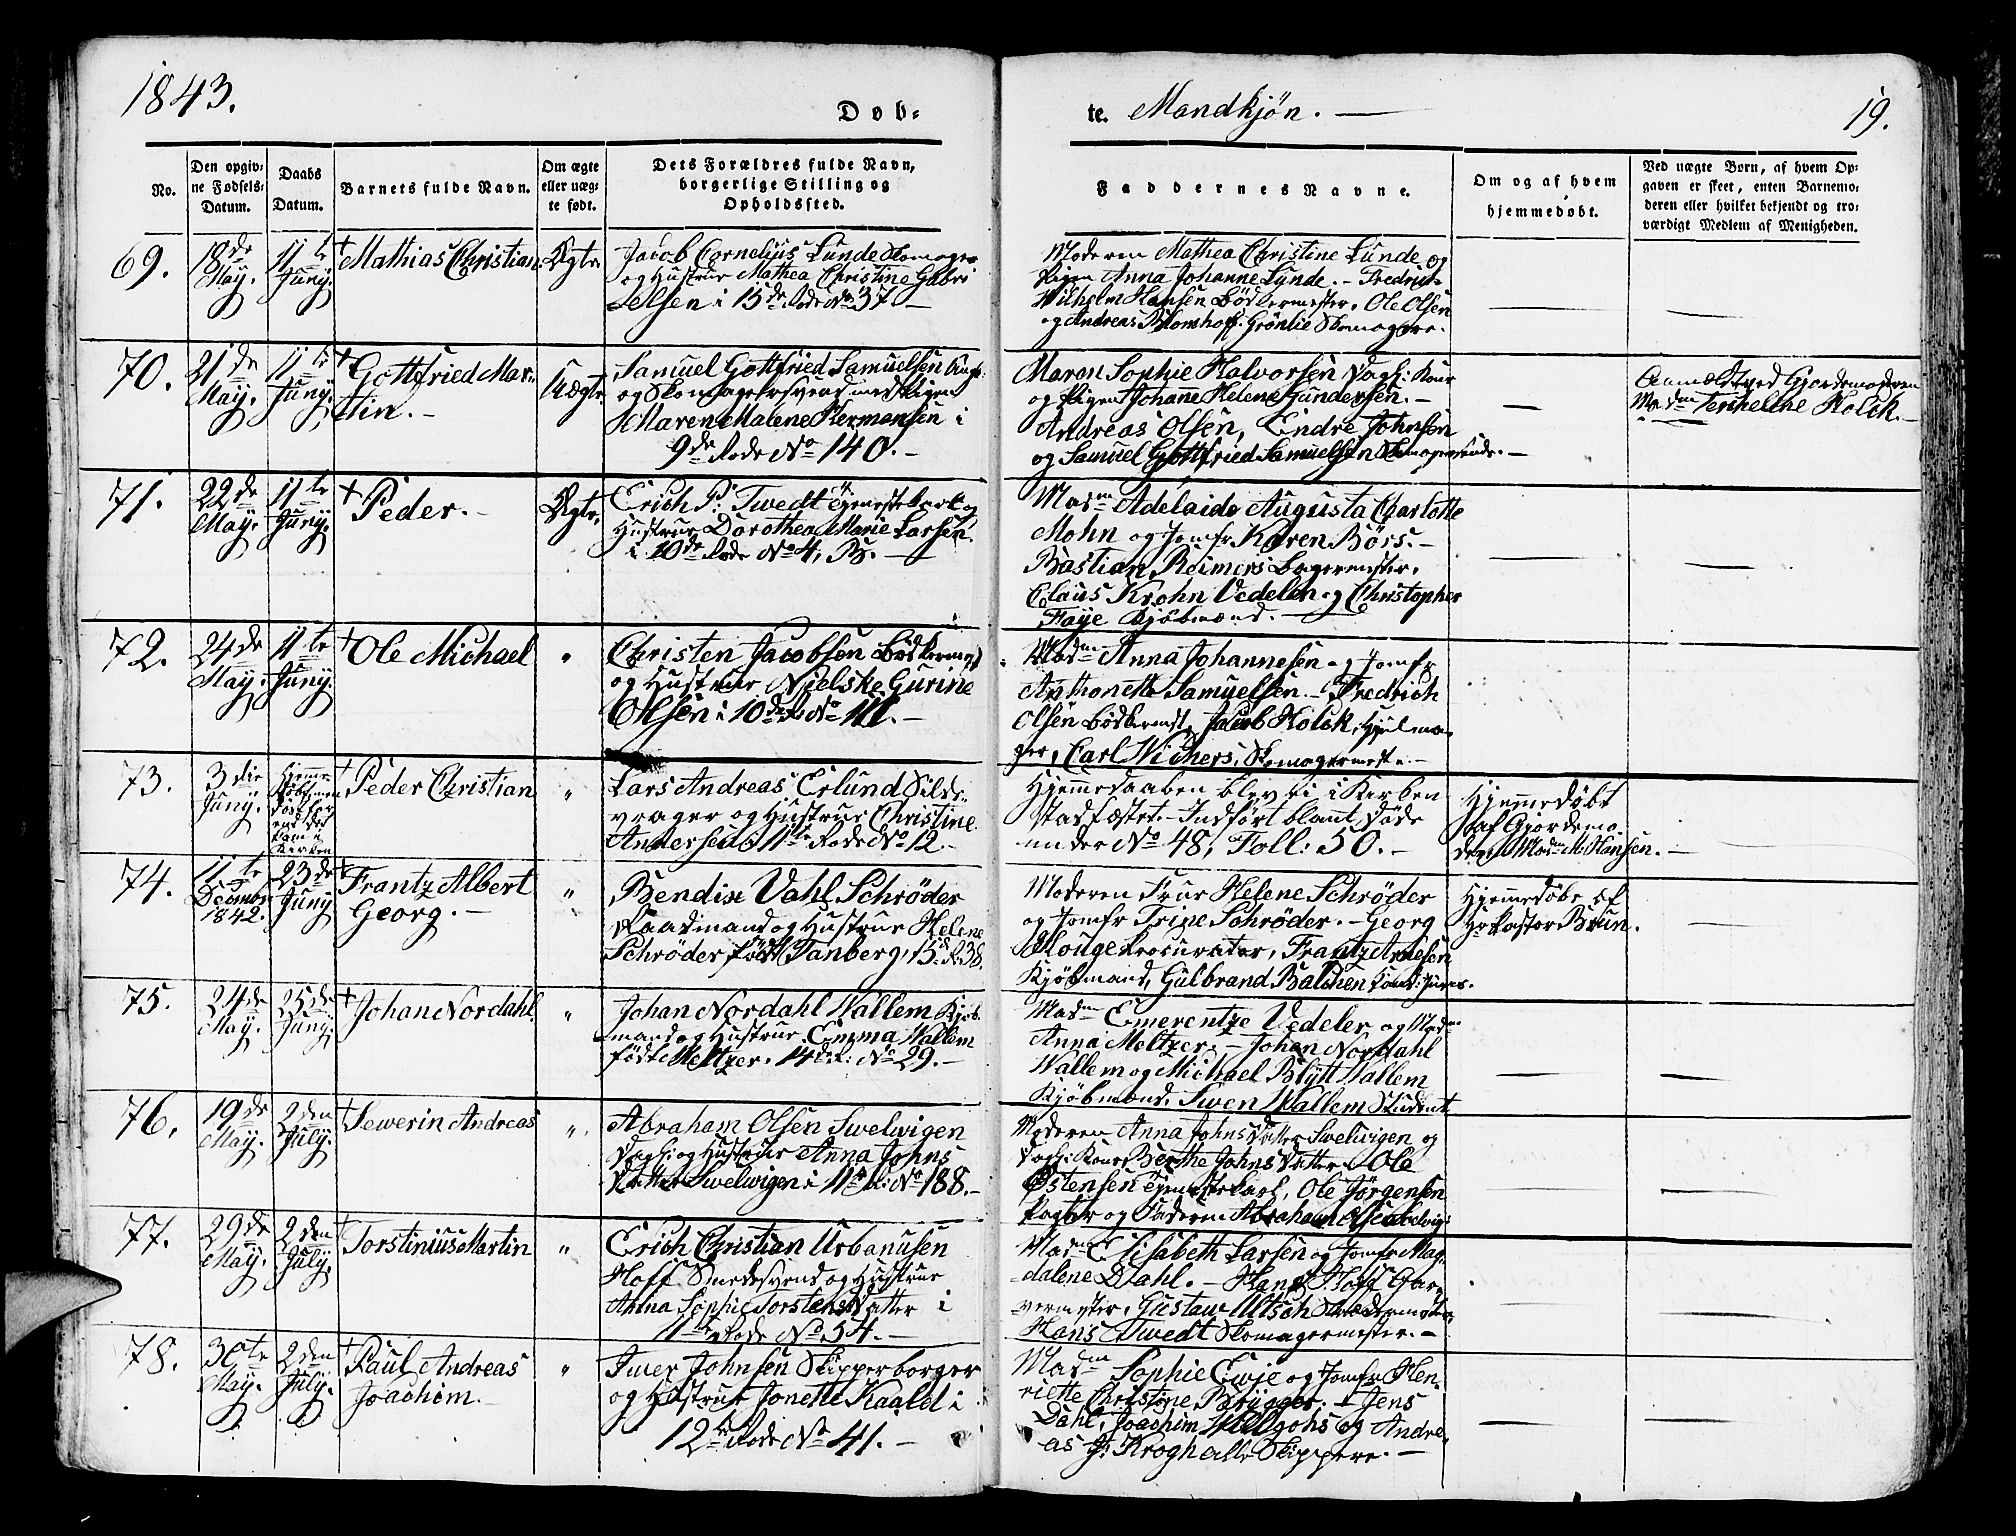 1843.
Døb-
te. Mandkjøn. —
19.
No.
Den opgiv-
ne Fødsels-
Datum.
Daabs
Datum.
Barnets fulde Navn.
Om ægte
eller uæg-
te født.
Dets Forældres fulde Navn,
borgerlige Stilling og
Opholdssted.
Faddernes Navne.
Om og af hvem
hjemmedøbt.
Ved uægte Børn, af hvem Op-
gaven er skeet, enten Barnemo-
deren eller hvilket bekjendt og tro-
værdigt Medlem af Menigheden.
69.
18de
May.
11te
Juny.
+ Mathias Christian
Ægte.
Jacob Cornelius Lunde Skomager
og Hustrue Mathea Christine Gabri
elsen i 15de Rode No 37. —
Moderen Mathea Christine Lunde og
Pigen Anna Johanne Lunde. — Fredrich
Wilhelm Hansen Bödkermester, Ole Olsen
og Andreas Blomhoff Grönlie Skomagere.
70.
21de
May.
11te
Juny.
+ Gottfried Mar-
tin. —
Uægte.
Samuel Gottfried Samuelsen
og Skomagersvend med Pigen
Maren Malene Hermansen i
9de Rode No 140. —
Maren Sophie Halvorsen Dagk: Kone
og Pigen Johane Helene Gundersen. —
Andreas Olsen, Endre Johnsen
og Samuel Gottfried Samuelsen Skomagersvende. —
Anmeldt ved Gjordemoderen
Madm Holck. —
71.
22de
May.
11te
Juny.
+ Peder. —
Ægte.
Erich P: Twedt Ejemestekarl og
Hustrue Dorothea Marie Larsen
i 10de Rode No 4, B. —
Madm Adelaide Augusta Charlotte
Mohn og Jomfr Karen Börs. —
Bastian Reimers Bagermester,
Claus Krohn Vedeler og Christopher
Faye Kjöbmænd. —
72.
24de
May.
11te
Juny.
+ Ole Michael
"
Christen Jacobsen Bödkermest
og Hustrue Nielske Gurine
Olsen i 10de R. No 111. —
Madm Anna Johannesen og Jomfr
Anthonette Samuelsen. — Fredrich
Olsen Bödkermest, Jacob Holck, Hjulma-
ger, Carl Wichers, Skomagermest. —
73.
3die
Juny.
Hjemme
døbt men
døde för
end det
kom i
Kirken
+ Peder Christian
"
Lars Andreas Erlund Silde-
vrager og Hustrue Christine
Andersen 11te Rode No 12. —
Hjemmedaaben blev ei i Kirken
stadfæstet. — Indført blant Døde
under No 48, Foll: 50. —
Hjemmedøbt
af Gjordemo-
deren Madm M: Hansen. —
74.
11te
Decembr
1842.
23de
Juny
+ Frantz Albert
Georg. —
"
Bendix Vahl Schröder
Raadmand og Hustrue Helene
Schröder født Tanberg, 15de R. 38.
Moderen Frue Helene Schröder
og Jomfr Trine Schröder. — Georg
Procurator, Frantz Arnesen
Kjöbmand, Gulbrand Balchen Kand: Juris.
Hjemmedøbt af
Hr Pastor Brun.
75.
24de
May.
25de
Juny.
+ Johan Nordahl
"
Johan Nordahl Wallem Kjöb-
mand og Hustrue Emma Wallem
født Meltzer, 14de R: No 29. —
Madm Emerentze Vedeler og Madm
Anna Meltzer. — Johan Nordahl
Wallem og Michael Blytt Wallem
Kjöbmænd, Swen Wallem Student
76.
19de
May.
2den
July.
+ Sewerin Andreas
"
Abraham Olsen Swelwigen
Dagk: og Hustrue Anna Johns
Datter Swelwigen i 11te R: No 188. —
Moderen Anna Johns Datter Swelwigen og
Dagk: Kone Berthe Johns Datter. — Ole
Østensen Ejemestekarl, Ole Jörgensen
og Faderen Abraham Olsen Swelvig:
77.
29de
May.
2den
July.
+ Torstinius Martin
"
Erich Christian Urbanusen
Hoff Smedesvend og Hustrue
Anna Sophie Torstens Datter i
11te Rode No 54. —
Madm Elisabeth Larsen og Jomfr Mag-
dalene Dahl. — Hans Hoff Gar-
vermester, Gustav Ultsch Skrædermester
Hans Twedt Skomagermester. —
78.
30te
May.
2den
July.
+ Paul Andreas
Joachim. —
"
Iwer Johnsen Skipperborger
og Hustrue Jonette Kaald i
12te Rode No 41. —
Madm Sophie Ewje og Jomfr Hen-
riette Christine Brygger. — Jens
Dahl, Joachim Willgohs og Andre-
as J: Krogh alle Skippere. —